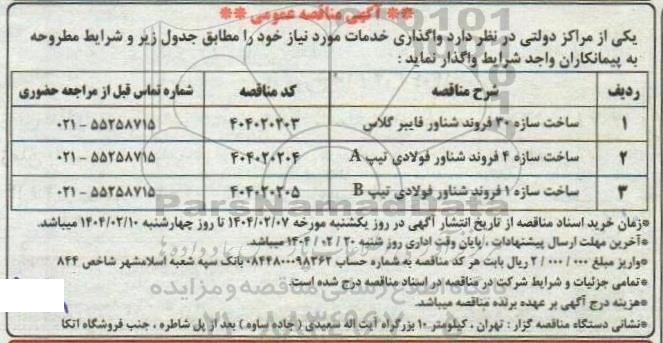 ** آگهی مناقصه عمومی **
یکی از مراکز دولتی در نظر دارد واگذاری خدمات مورد نیاز خود را مطابق جدول زیر و شرایط مطروحه
به پیمانکاران واجد شرایط واگذار نماید :
ردیف شرح مناقصه کد مناقصه شماره تماس قبل از مراجعه حضوری
۱ ساخت سازه ۳۰ فروند شناور فایبر گلاس ۴۰۴۰۲۰۲۰۳ ۰۲۱ - ۵۵۲۵۸۷۱۵
۲ ساخت سازه ۴ فروند شناور فولادی تیپ A ۴۰۴۰۲۰۲۰۴ ۰۲۱ - ۵۵۲۵۸۷۱۵
۳ ساخت سازه ۱ فروند شناور فولادی تیپ B ۴۰۴۰۲۰۲۰۵ ۰۲۱ - ۵۵۲۵۸۷۱۵
ParsNamadData
*زمان خرید اسناد مناقصه از تاریخ انتشار آگهی در روز یکشنبه مورخه ۱۴۰۴/۰۲/۰۷ تا روز چهارشنبه ۱۴۰۴/۰۲/۱۰ میباشد.
*آخرین مهلت ارسال پیشنهادات ، پایان وقت اداری روز شنبه ۲۰ / ۰۲ / ۱۴۰۴ میباشد.
*واریز مبلغ ۲/۰۰۰/۰۰۰ ریال بابت هر کد مناقصه به شماره حساب ۰۸۴۴۸۰۰۰۹۸۳۶۲ بانک سپه شعبه اسلامشهر شاخص ۸۴۴
*تمامی جزئیات و شرایط شرکت در مناقصه در اسناد مناقصه درج شده است.
*هزینه درج آگهی بر عهده برنده مناقصه میباشد.
*نشانی دستگاه مناقصه گزار : تهران ، کیلومتر ۱۰ بزرگراه آیت اله سعیدی ( جاده ساوه ) بعد از پل شاطره ، جنب فروشگاه اتکا